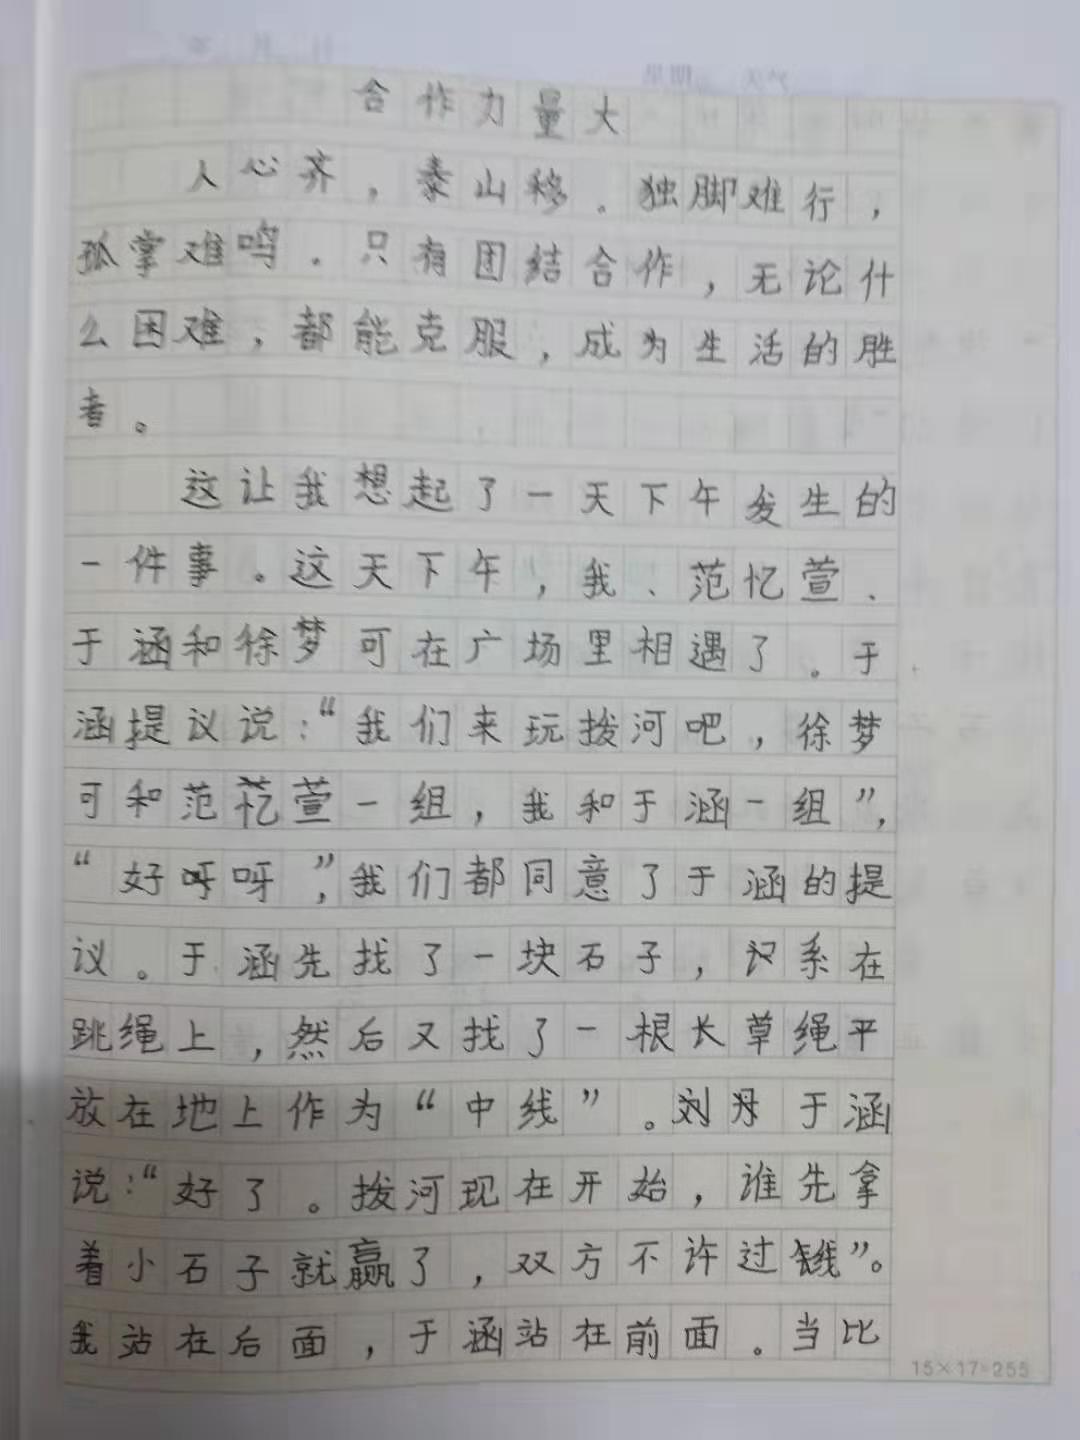 合作力量大
人心齐，泰山移。独脚难行，
孤掌难鸣。只有团结合作，无论什
么困难，都能克服，成为生活的胜
者。
这让我想起了一天下午发生的
一件事。这天下午，我、范忆萱、
于涵和徐梦可在广场里相遇了。于
涵提议说：“我们来玩拨河吧，徐梦
可和范忆萱一组，我和于涵一组”，
“好呀呀，”我们都同意了于涵的提
议。于涵先找了一块石子，系在
跳绳上，然后又找了一根长草绳平
放在地上作为“中线”。于涵
说：“好了。拨河现在开始，谁先拿
着小石子就赢了，双方不许过线”。
我站在后面，于涵站在前面。当比
15×17=255